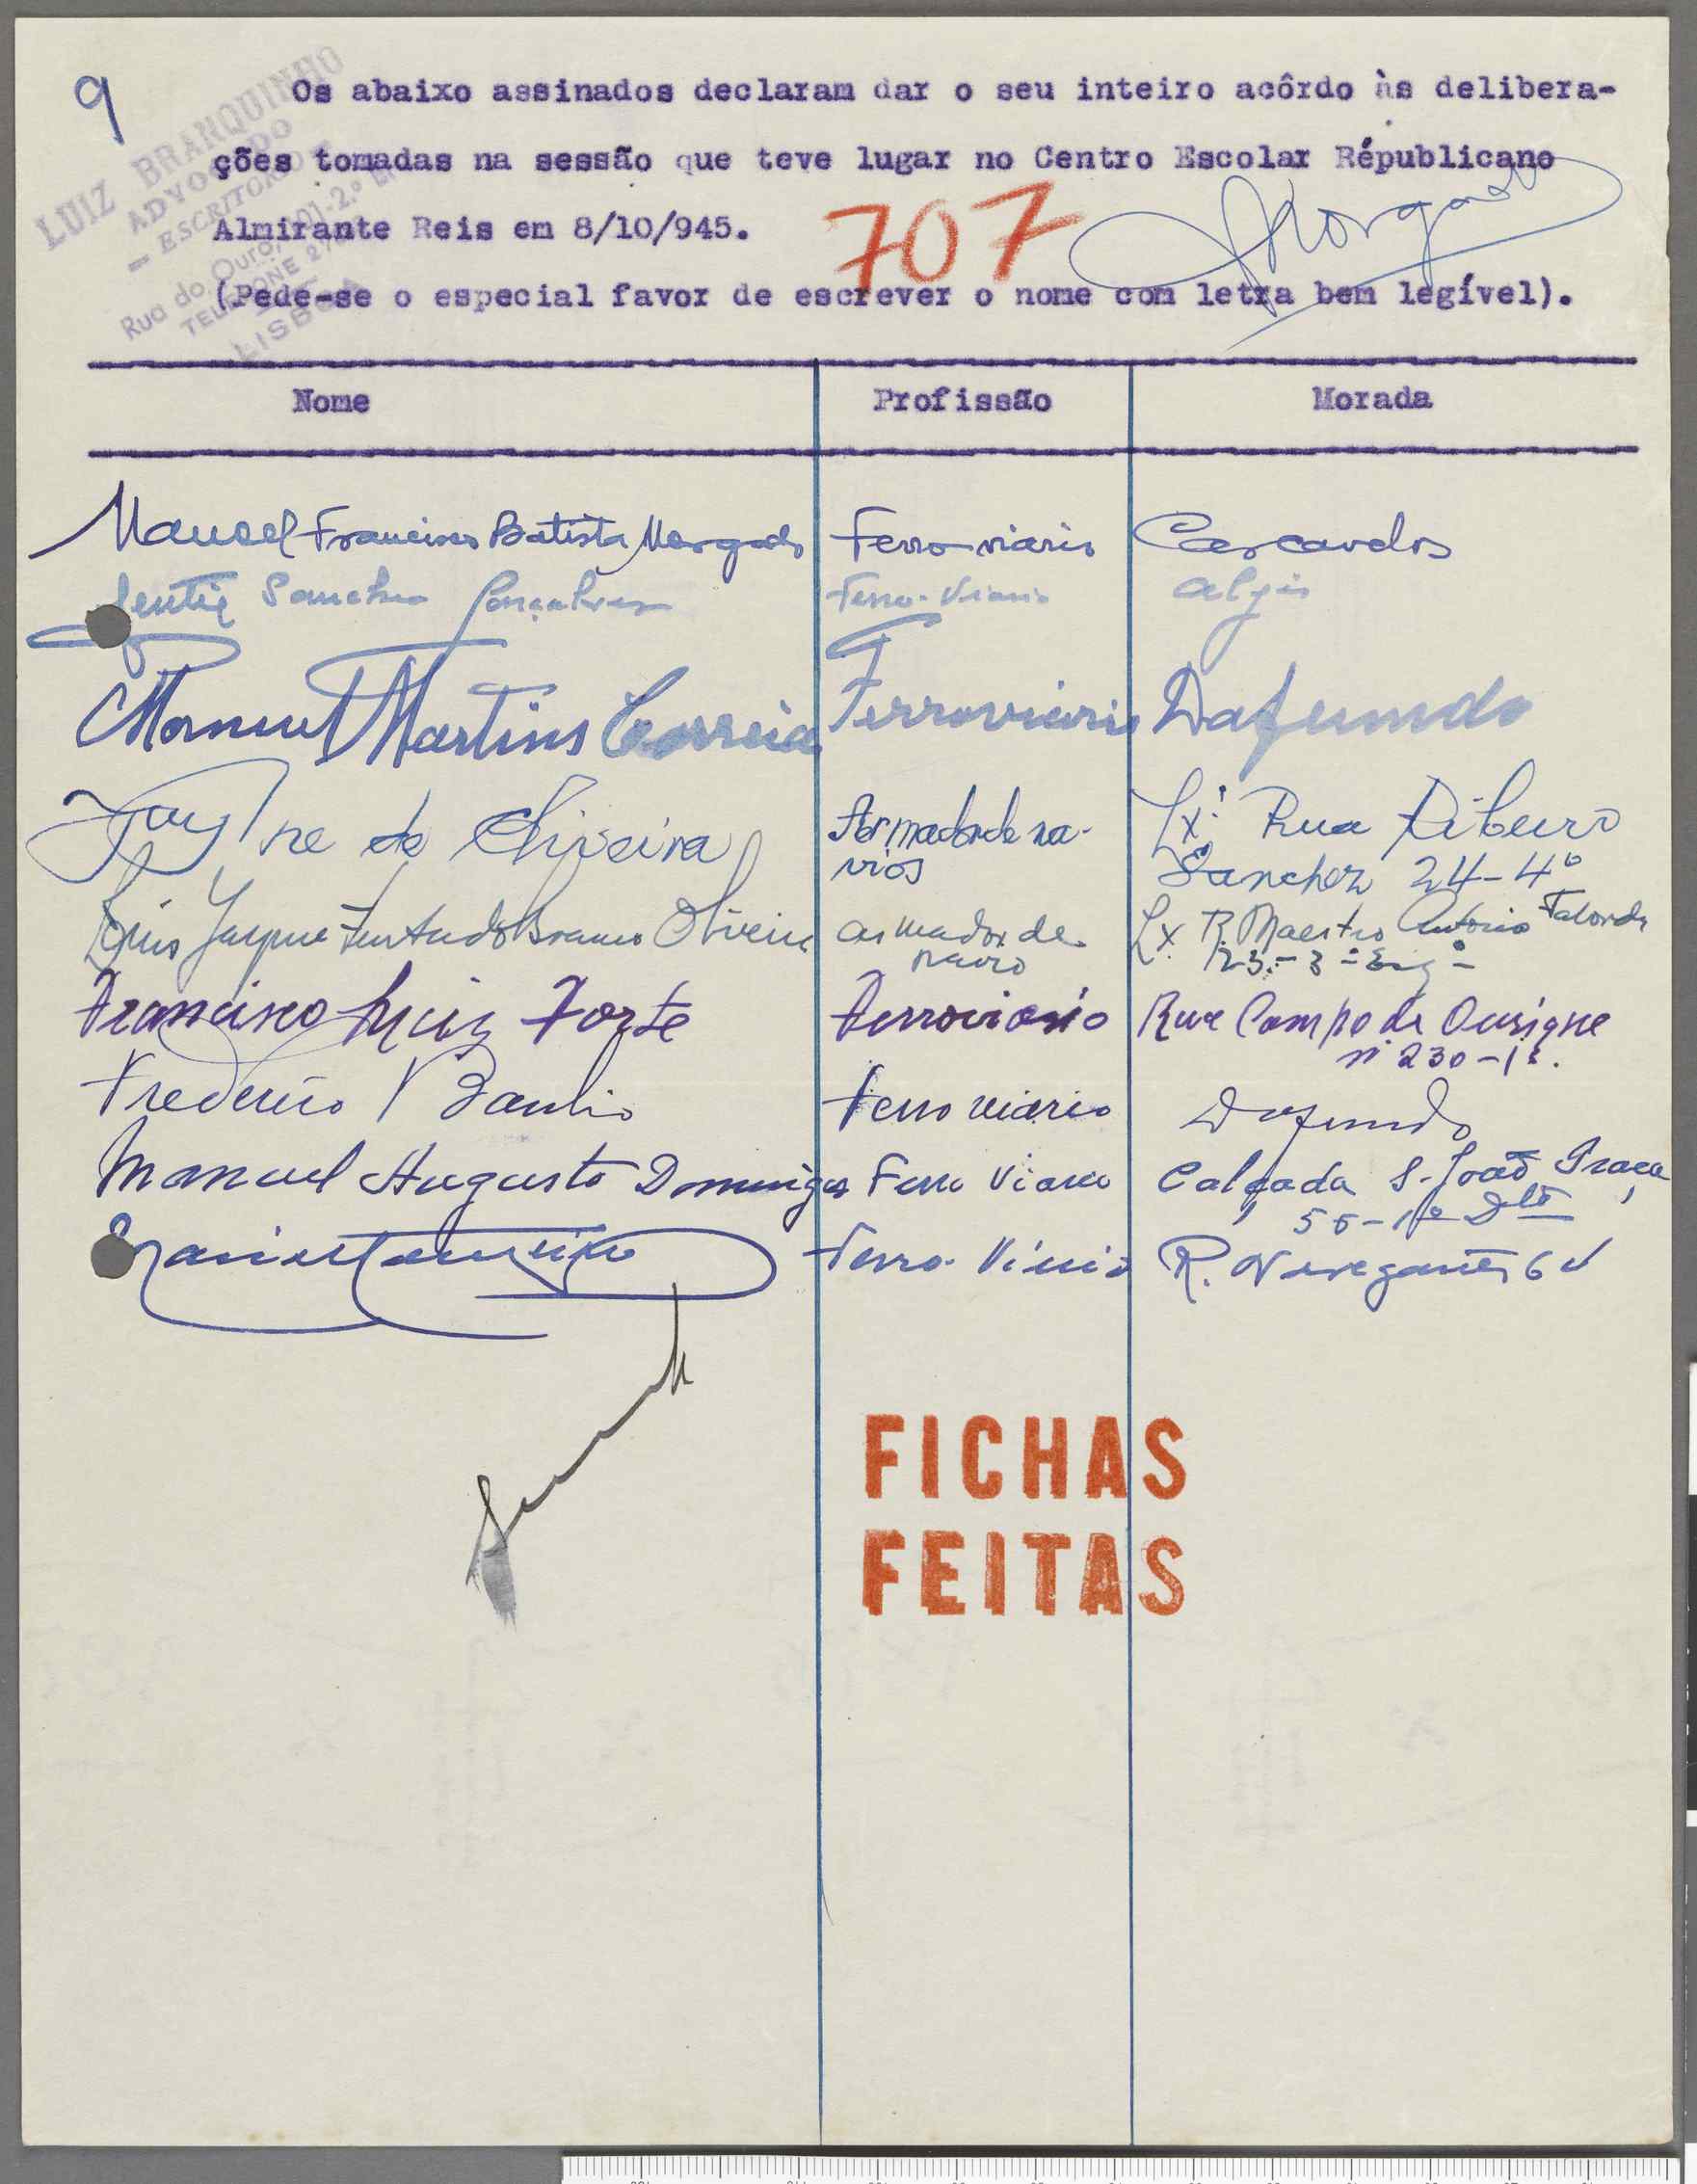 9
LUIZ BRANQUINHO
ADVOGADO
= ESCRITORIO =
Rua do Ouro, 101-2.º
TELEFONE
LISBOA
Os abaixo assinados declaram dar o seu inteiro acôrdo às delibera-
ções tomadas na sessão que teve lugar no Centro Escolar Républicano
Almirante Reis em 8/10/945.
707
Morgado
(Pede-se o especial favor de escrever o nome com letra bem legível).
Nome Profissão Morada
Manoel Francisco Batista Morgado Ferro-viario Carcavelos
Sancho Gonçalves Ferro-Viario Algés
Manuel Martins Correia Ferroviário Dafundo
de Oliveira Armador de na- Lx. Rua Ribeiro
vios Sanches 24-4º
Luis Jayme Furtado Branco Oliveira armador de Lx R. Maestro Antonio Taborda
navio 23.-3º Esqº
Francisco Luiz Forte Ferroviario Rua Campo de Ourique
nº 230-1º.
Frederico Ferro viario Dafundo
Manuel Augusto Domingos Ferro Viario Calçada S. João Praça
55-1º Dto
Ferro-Viário R. Navegantes
FICHAS
FEITAS